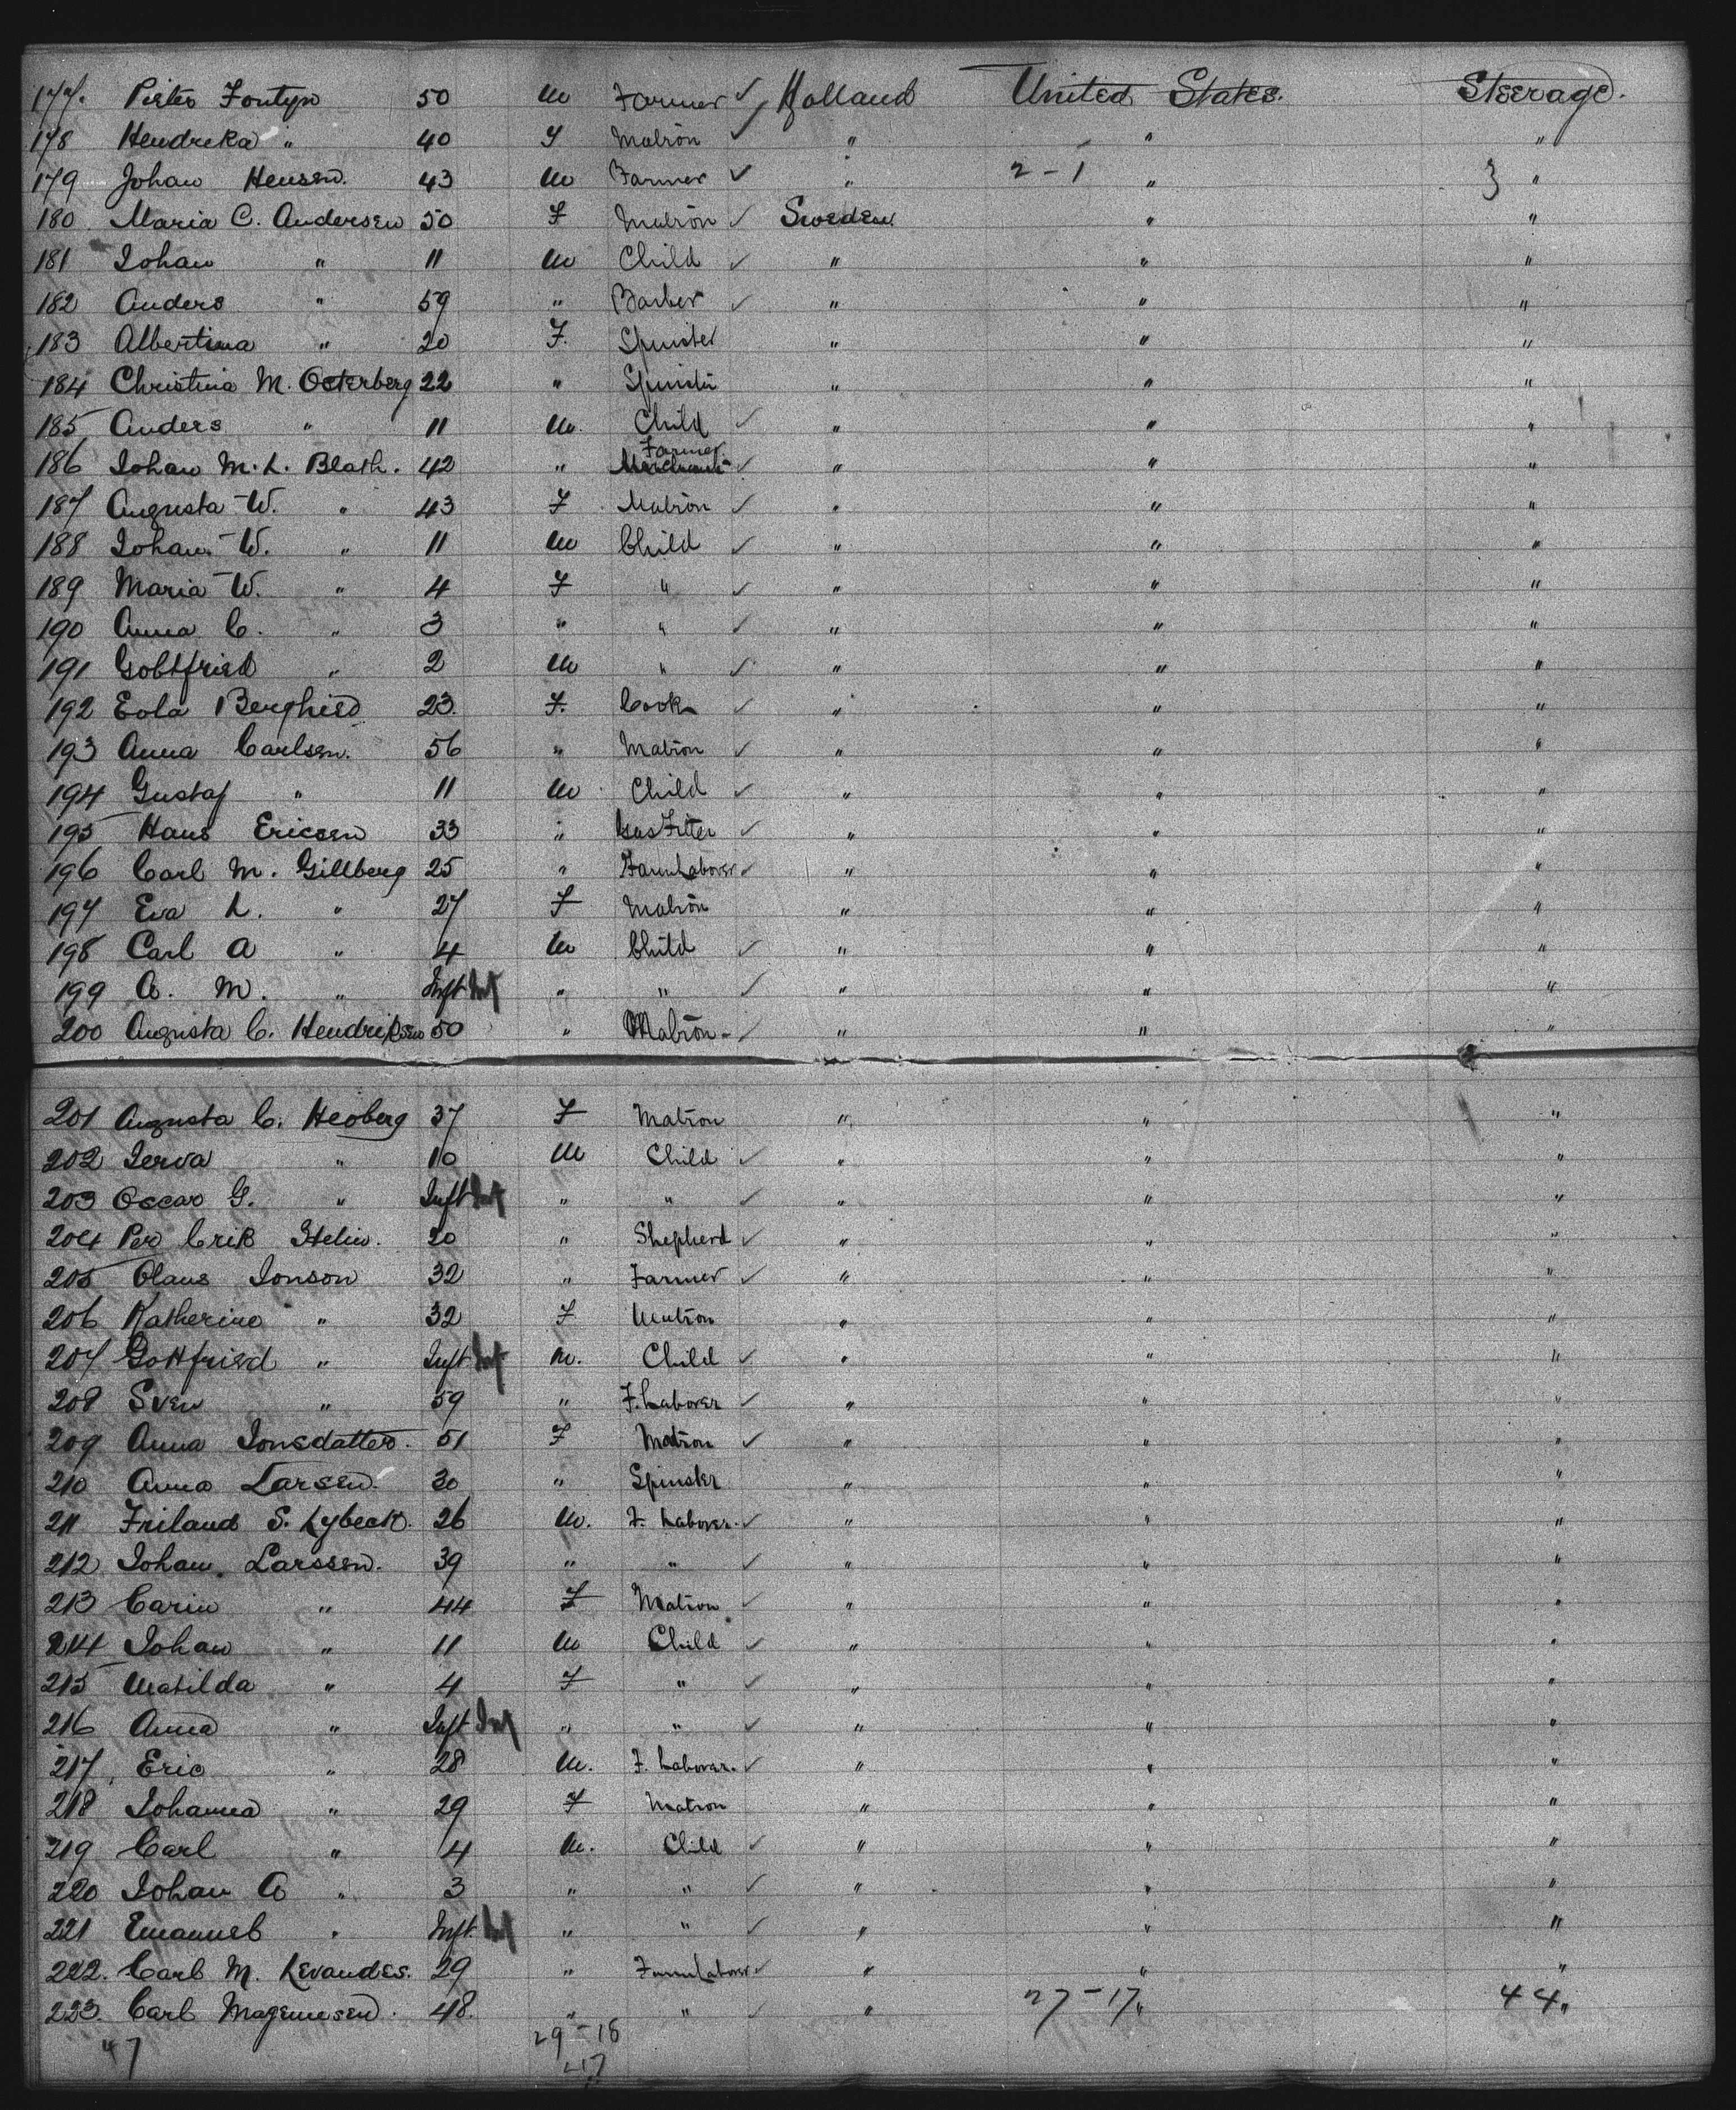 177. Pieter Fontyn 50 M Farmer ✓ Holland United States. Steerage.
178 Hendreka " 40 F Matron ✓ " " "
179 Johan Hensen. 43 M Farmer ✓ " 2-1 " 3 "
180 Maria C. Andersen 50 F Matron ✓ Sweden. " "
181 Johan " 11 M Child ✓ " " "
182 Anders " 59 " Barber ✓ " " "
183 Albertina " 20 F. Spinster " " "
184 Christina M. Osterberg 22 " Spinster " " "
185 Anders " 11 M. Child ✓ " " "
186 Johan M. L. Blath. 42 " Farmer ✓ " " "
187 Augusta W. " 43 F Matron ✓ " " "
188 Johan W. " 11 M Child ✓ " " "
189 Maria W. " 4 F " ✓ " " "
190 Anna C. " 3 " " ✓ " " "
191 Gottfried " 2 M " ✓ " " "
192 Eola Berghied 23. F. Cook ✓ " " "
193 Anna Carlsen. 56 " Matron ✓ " " "
194 Gustaf " 11 M Child ✓ " " "
195 Hans Ericsen 33 " Gas Fitter ✓ " " "
196 Carl M. Gillberg 25 " Farm Laborer ✓ " " "
197 Eva L. " 27 F Matron " " "
198 Carl A " 4 M Child ✓ " " "
199 A. M. " Inft Inf " " ✓ " " "
200 Augusta C. Hendriksen 50 " Matron - ✓ " " "
201 Augusta C. Heoberg 37 F Matron " " "
202 Jerva " 10 M Child ✓ " " "
203 Oscar G. " Inft Inf " " ✓ " " "
204 Per Erik Helin. 20 " Shepherd ✓ " " "
205 Olaus Jonson 32 " Farmer ✓ " " "
206 Katherine " 32 F Matron " " "
207 Gottfried " Inft Inf M. Child ✓ " " "
208 Sven " 59 " F. Laborer ✓ " " "
209 Anna Jonsdatter. 51 F Matron ✓ " " "
210 Anna Larsen. 30 " Spinster " " "
211 Friland S. Lybeck. 26 M. F. Laborer. ✓ " " "
212 Johan. Larssen. 39 " " ✓ " " "
213 Carin " 44 F Matron ✓ " " "
214 Johan " 11 M Child ✓ " " "
215 Matilda " 4 F " ✓ " " "
216 Anna " Inft Inf " " ✓ " " "
217 Eric " 28 M. F. Laborer. ✓ " " "
218 Johanna " 29 F Matron " " "
219 Carl " 4 M. Child ✓ " " "
220 Johan A " 3 " " ✓ " " "
221 Emanuel " Inft. Inf " " ✓ " " "
222. Carl M. Levandes. 29 " Farm Laborer ✓ " " "
223. Carl Magenusen. 48. " " ✓ " 27-17 " 44 "
47 29-18
47